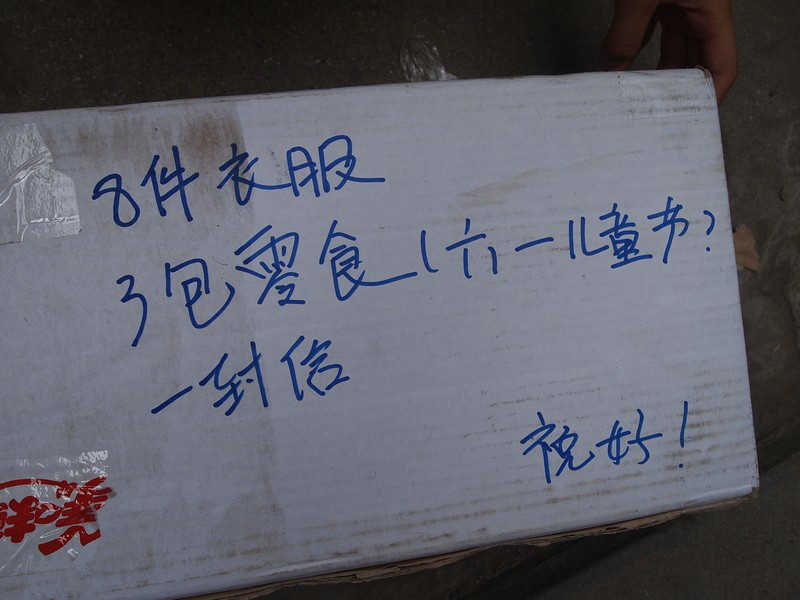 8件衣服
3包零食(六一儿童节)
一封信
祝好!